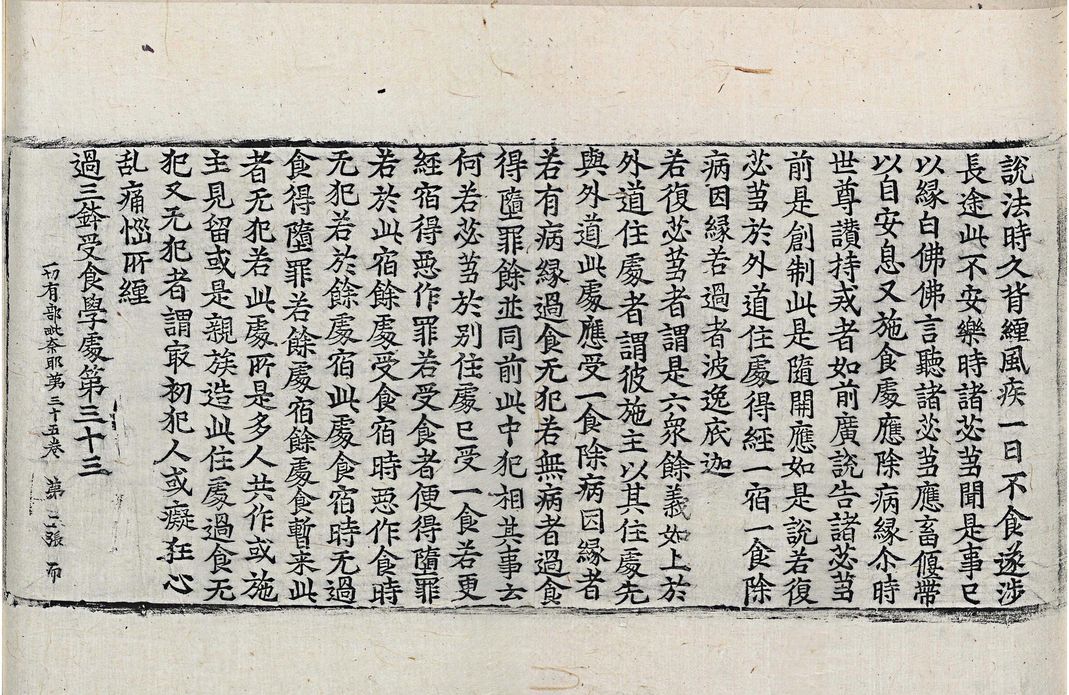 說法時久背縺風疾一日不食遂涉
長途此不安樂時諸苾芻聞是事已
以緣白佛佛言聽諸苾芻應畜偃帶
以自安息又施食處應除病緣尒時
世尊讚持戒者如前廣說告諸苾芻
前是創制此是隨開應如是說若復
苾芻於外道住處得經一宿一食除
病因緣若過者波逸底迦
若復苾芻者謂是六衆餘義如上於
外道住處者謂彼施主以其住處先
與外道此處應受一食除病因緣者
若有病緣過食无犯若無病者過食
得墮罪餘並同前此中犯相其事云
何若苾芻於別住處已受一食若更
經宿得惡作罪若受食者便得墮罪
若於此宿餘處受食宿時惡作食時
无犯若於餘處宿此處食宿時无過
食得墮罪若餘處宿餘處食暫来此
者无犯若此處所是多人共作或施
主見留或是親族造此住處過食无
犯又无犯者謂最初犯人或癡狂心
乱痛惱所纏
過三鉢受食學處第三十三
一切有部毗奈耶第三十五卷 第二張 而